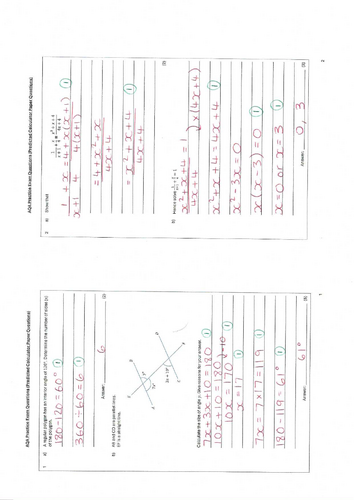 AQA Practice Exam Questions (Predicted Calculator Paper Questions)
1 a) A regular polygon has an interior angle of 120°. Determine the number of sides (n) of the polygon.
180-120=60° ①
360÷60=6 ①
Answer: 6
(2)
b) AB and CD are parallel lines.
EF is a straight line.
7x°
3x + 10°
Calculate the size of angle y. Give reasons for your answer.
7x+3x+10=180 ①
10x+10=180 )-10 ①
10x=170 ①
x=17 ①
7x=7×17=119 ①
180-119=61° ①
Answer: 61°
1
AQA Practice Exam Questions (Predicted Calculator Paper Questions)
2 a) Show that
1/(x+1) + x/4 = (4+x(x+1))/(4(x+1)) ①
=(4+x²+x)/(4x+4)
=(x²+x+4)/(4x+4) ①
(2)
b) Hence solve 1/(x+1) + x/4 = 1
(x²+x+4)/(4x+4) = 1 )×(4x+4)
x²+x+4=4x+4 ①
x²-3x=0
x(x-3)=0 ①
x=0 or x=3 ①
Answer: 0, 3
(3)
2